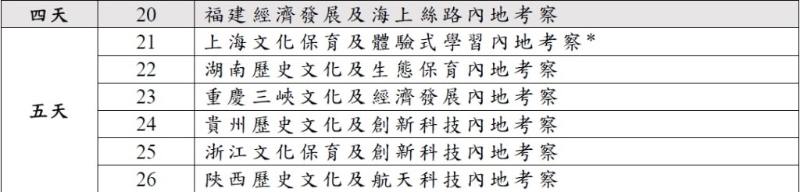 四天 20 福建經濟發展及海上絲路內地考察
21 上海文化保育及體驗式學習內地考察*
22 湖南歷史文化及生態保育內地考察
23 重慶三峽文化及經濟發展內地考察
五天 24 貴州歷史文化及創新科技內地考察
25 浙江文化保育及創新科技內地考察
26 陝西歷史文化及航天科技內地考察